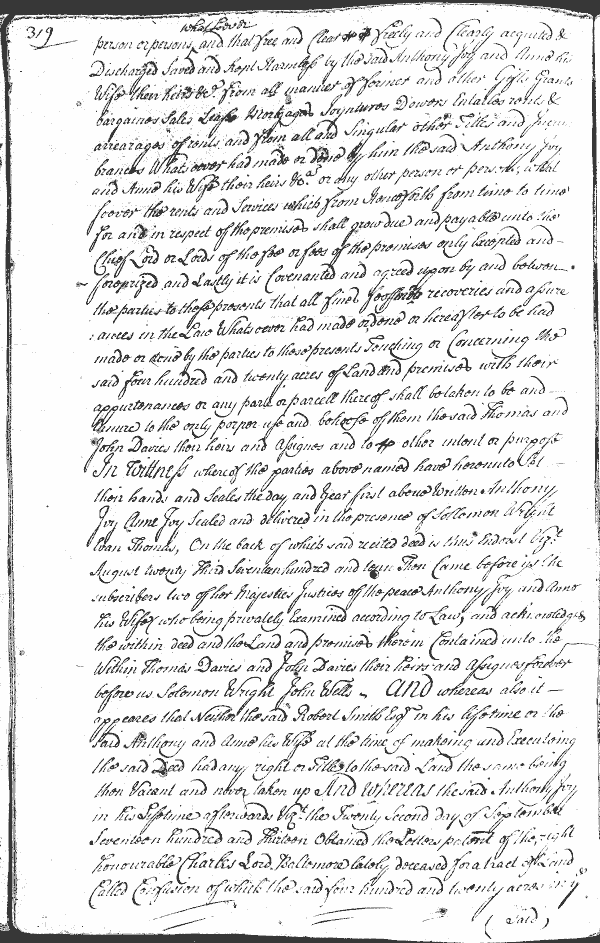 319
whatsoever
person or persons and that free and Clear Freely and Clearly acquited &
Discharged Saved and Kept Harmless by the said Anthony Ivy and Anne his
Wife their heirs &c. from all manner of former and other Gifts Grants
bargaines Sales Lease Mortgages Joyntures Dowers Entailes rents &
arrearages of rents and from all and Singular other Titles and Incum
brances Whatsoever had made or done by him the said Anthony Ivy
and Anne his Wife their heirs &c. or any other person or persons what
soever the rents and Services which from Henceforth from time to time
for and in respect of the premises shall grow due and payable unto the
Chief Lord or Lords of the fee or fees of the premises only Excepted and
foreprized and Lastly it is Covenanted and agreed upon by and between
the parties to these presents that all fines feofments recoveries and assure
ances in the Law Whatsoever had made or done or hereafter to be had
made or done by the parties to these presents Touching or Concerning the
said four hundred and twenty acres of Land and premises with their
appurtenances or any part or parcell thereof shall be taken to be and
Enure to the only proper use and behoofe of them the said Thomas and
John Davies their heirs and Assignes and to other intent or purpose
In Wittness whereof the parties above named have hereunto Set
their hands and Seales the day and year first above Written Anthony
Ivy Anne Ivy Sealed and delivered in the presence of Sollomon Wright
Evan Thomas, On the back of which said recited deed is thus Indorst Vizt.
August twenty Third Seventeen hundred and Then Came before us the
subscribers two of her Majesties Justices of the peace Anthony Ivy and Anne
his Wife who being privately Examined according to Law, and acknowledged
the within deed and the Land and premises therein Contained unto the
Within Thomas Davies and John Davies their heirs and Assignes forever
before us Solomon Wright John Wells - And whereas also it
appeares that Neither the said Robert Smith Esqr. in his lifetime or the
said Anthony and Anne his Wife at the time of makeing and Executing
the said Deed had any right or Title to the said Land the same being
then Vacant and never taken up And Whereas the said Anthony Ivy
in his Lifetime afterwards Vizt. the Twenty Second day of September
Seventeen hundred and Thirteen Obtained the Letters patent of the right
honourable Charles Lord Baltemore lately deceased for a tract of Land
Called Confusion of which the said four hundred and twenty acres in ye
(said)